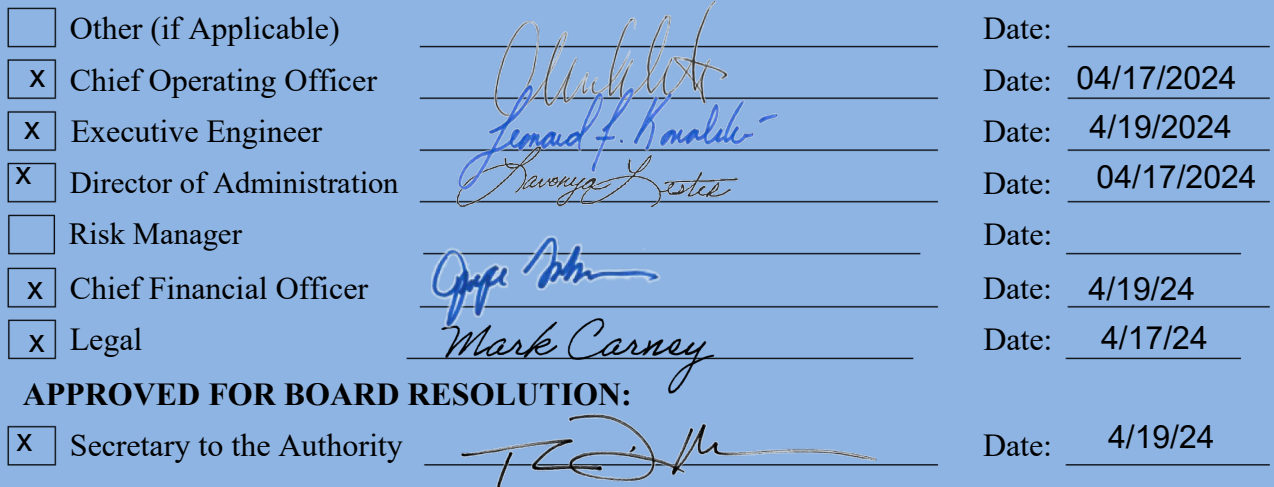 Other (if Applicable) Date:
x Chief Operating Officer Date: 04/17/2024
x Executive Engineer Leonard F. Kowalski Date: 4/19/2024
x Director of Administration Lavonya Lester Date: 04/17/2024
Risk Manager Date:
x Chief Financial Officer Date: 4/19/24
x Legal Mark Carney Date: 4/17/24
APPROVED FOR BOARD RESOLUTION:
x Secretary to the Authority Date: 4/19/24